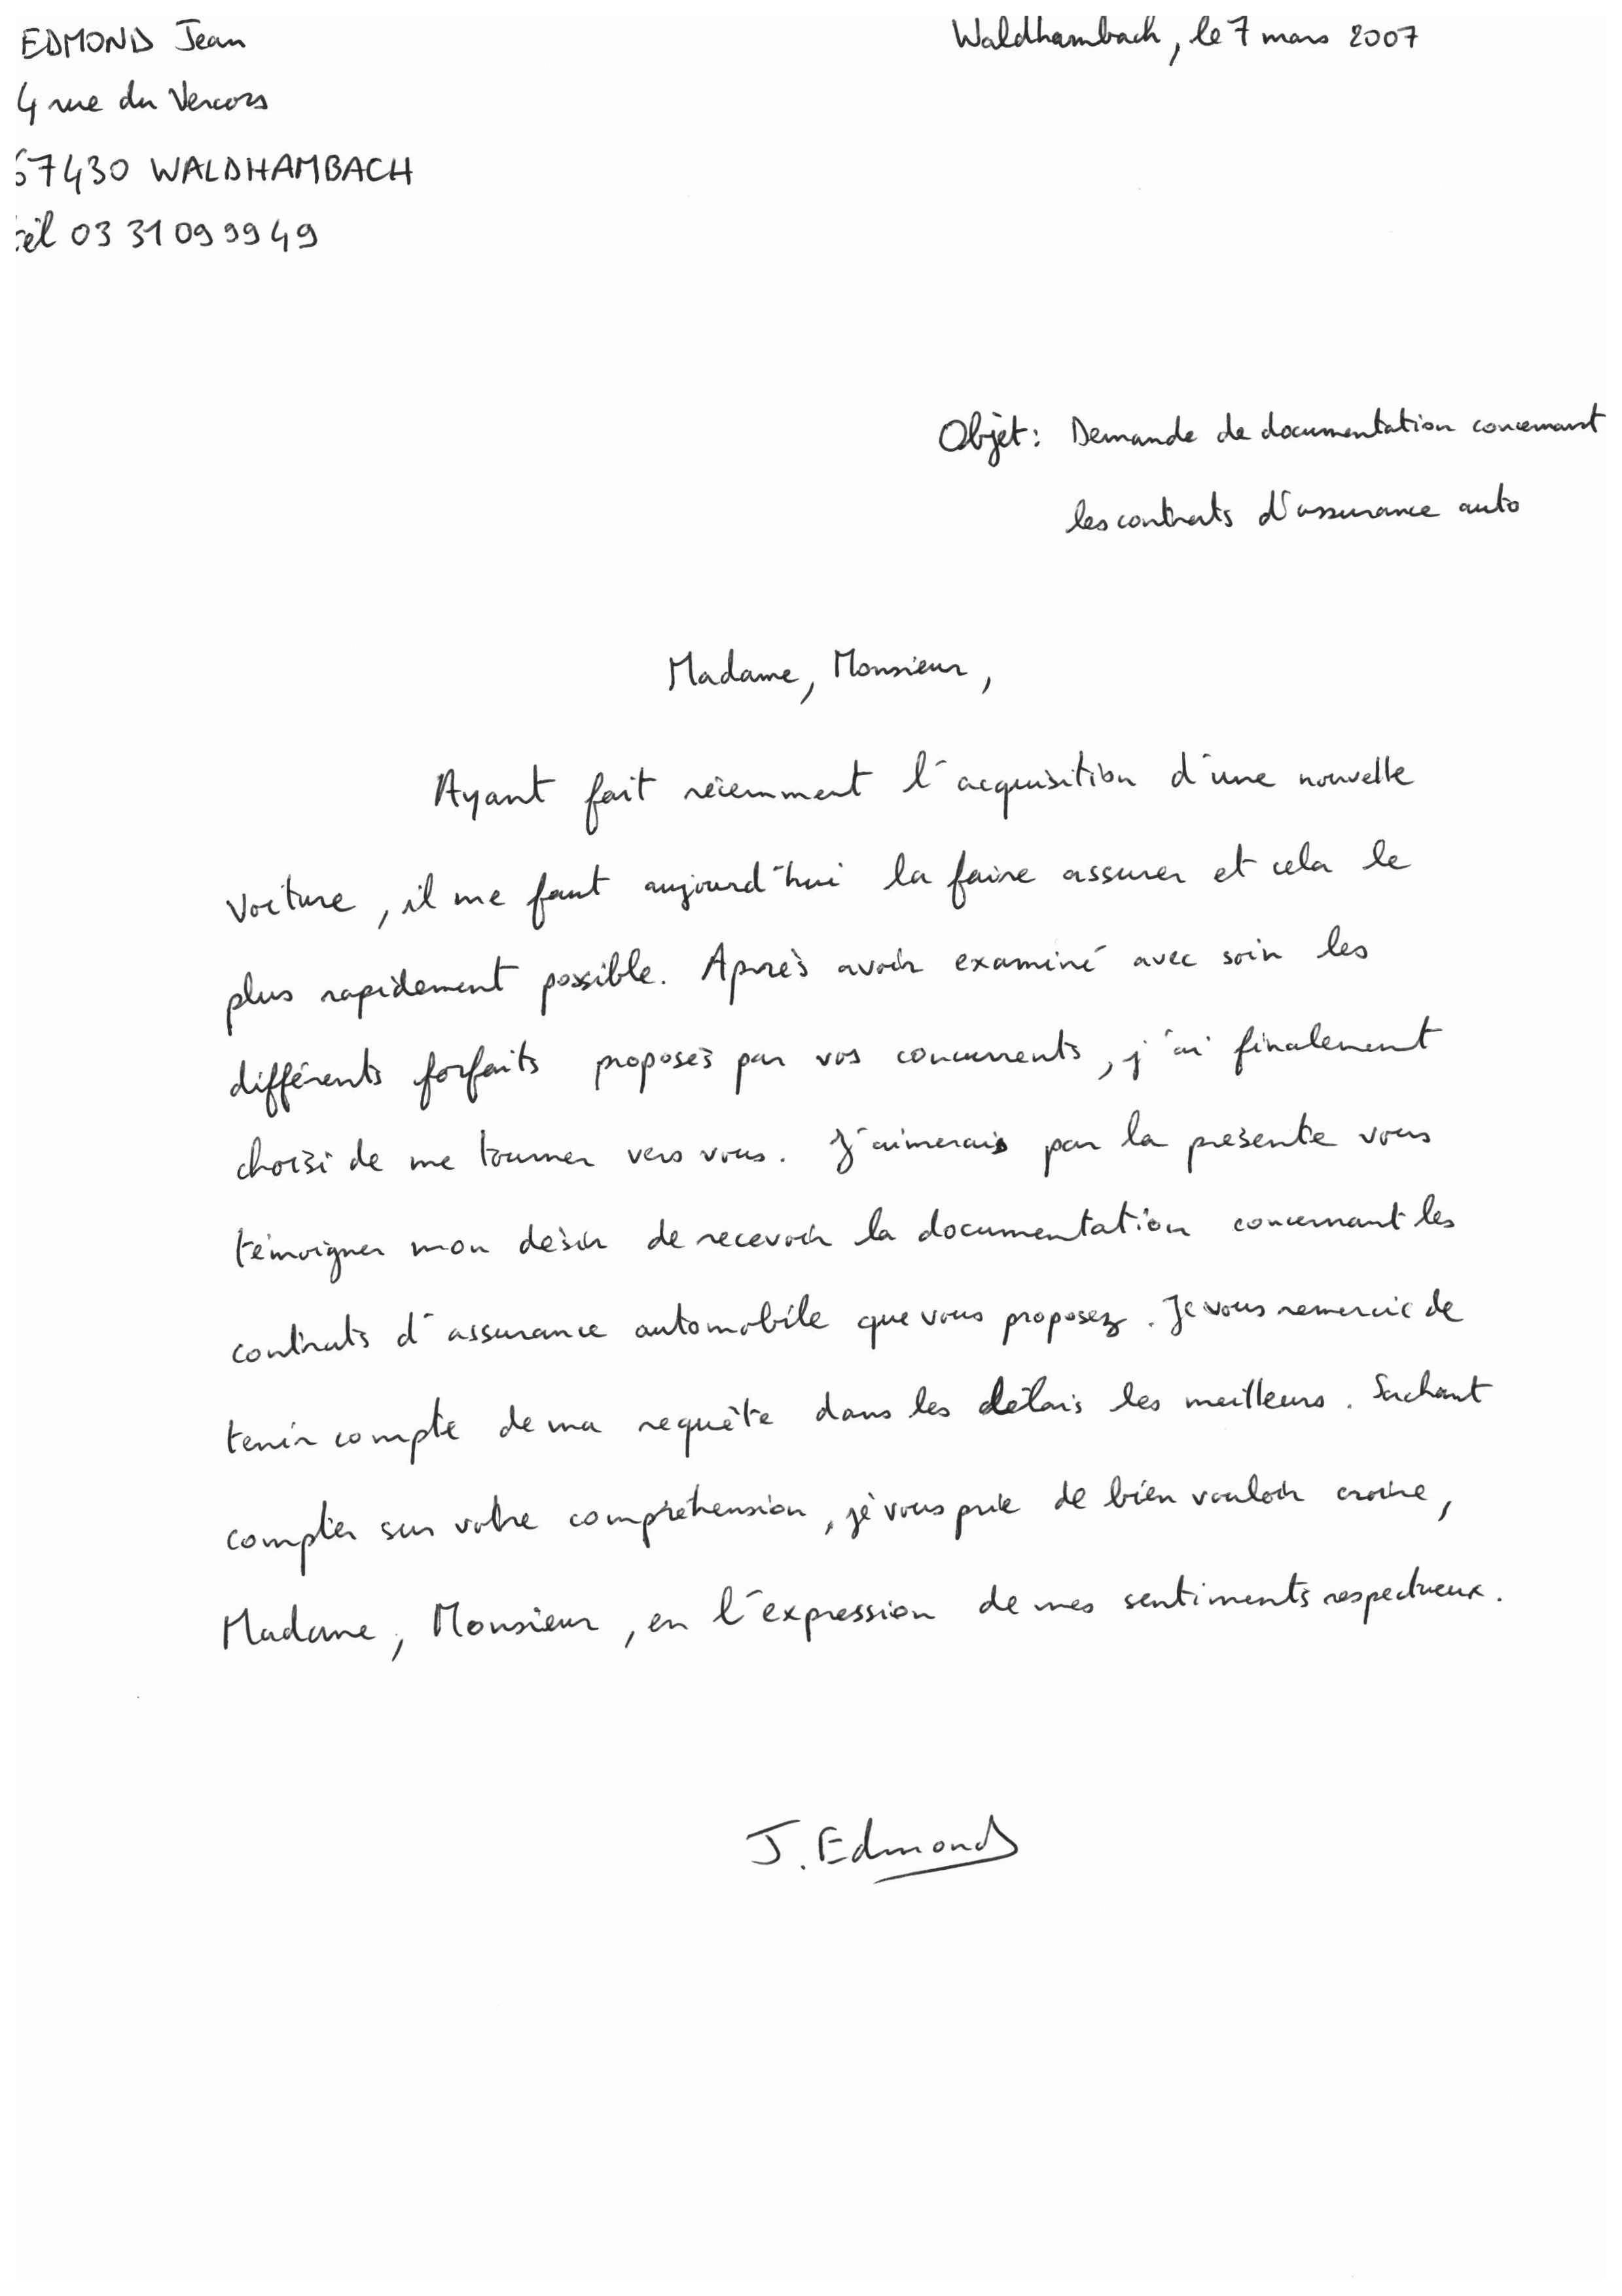 EDMOND Jean
Waldhambach, le 7 mars 2007
4 rue du Vercors
67430 WALDHAMBACH
tél 03 31 09 99 49
Objet : Demande de documentation concernant
les contrats d'assurance auto
Madame, Monsieur,
Ayant fait récemment l'acquisition d'une nouvelle
voiture, il me faut aujourd'hui la faire assurer et cela le
plus rapidement possible. Après avoir examiné avec soin les
différents forfaits proposés par vos concurrents, j'ai finalement
choisi de me tourner vers vous. J'aimerais par la présente vous
témoigner mon désir de recevoir la documentation concernant les
contrats d'assurance automobile que vous proposez. Je vous remercie de
tenir compte de ma requête dans les délais les meilleurs. Sachant
compter sur votre compréhension, je vous prie de bien vouloir croire,
Madame, Monsieur, en l'expression de mes sentiments respectueux.
J. Edmond